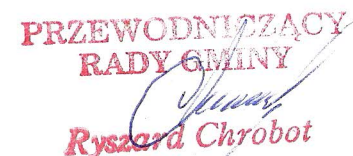 PRZEWODNICZĄCY
RADY GMINY
Ryszard Chrobot